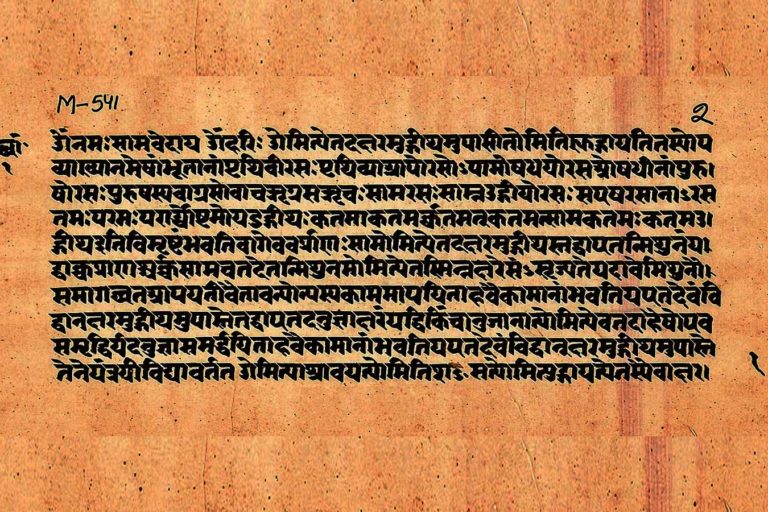 M-541
२
ॐनमःसामवेदाय ॐहरिः ॐमित्येतदक्षरमुद्गीथमुपासीतोमितिह्युद्गायतितस्योप
व्याख्यानमेषांभूतानांपृथिवीरसःपृथिव्याआपोरसोऽपामोषधयोरसओषधीनांपुरु
षोरसःपुरुषस्यवाग्रसोवाचऋग्रसऋचःसामरसःसाम्नउद्गीथोरसः सएषरसानाꣳरस
तमःपरमःपरार्ध्योष्टमोयदुद्गीथःकतमाकतमर्क्कतमत्कतमत्सामकतमःकतमउ।
द्गीथइतिविमृष्टंभवतिवागेवर्क्प्राणःसामोमित्येतदक्षरमुद्गीथस्तद्वाएतन्मिथुनंय।
द्वाक्चप्राणश्चर्क्चसामचतदेतन्मिथुनमोमित्येतस्मिन्नक्षरेसꣳसृज्यतेयदावैमिथुनौ।
समागच्छतआपयतोवैतावन्योन्यस्यकाममापयिताहवैकामानांभवतियएतदेवंवि
द्वानक्षरमुद्गीथमुपास्तेतद्वाएतदनुज्ञाक्षरंयद्धिकिंचानुजानात्योमित्येवतदाहैषोएव
समृद्धिर्यदनुज्ञासमर्धयिताहवैकामानांभवतियएतदेवंविद्वानक्षरमुद्गीथमुपास्ते
तेनेयंत्रयीविद्यावर्तते ॐमित्याश्रावयत्योमितिशꣳसत्योमित्युद्गायत्येतस्यैवाक्षर।